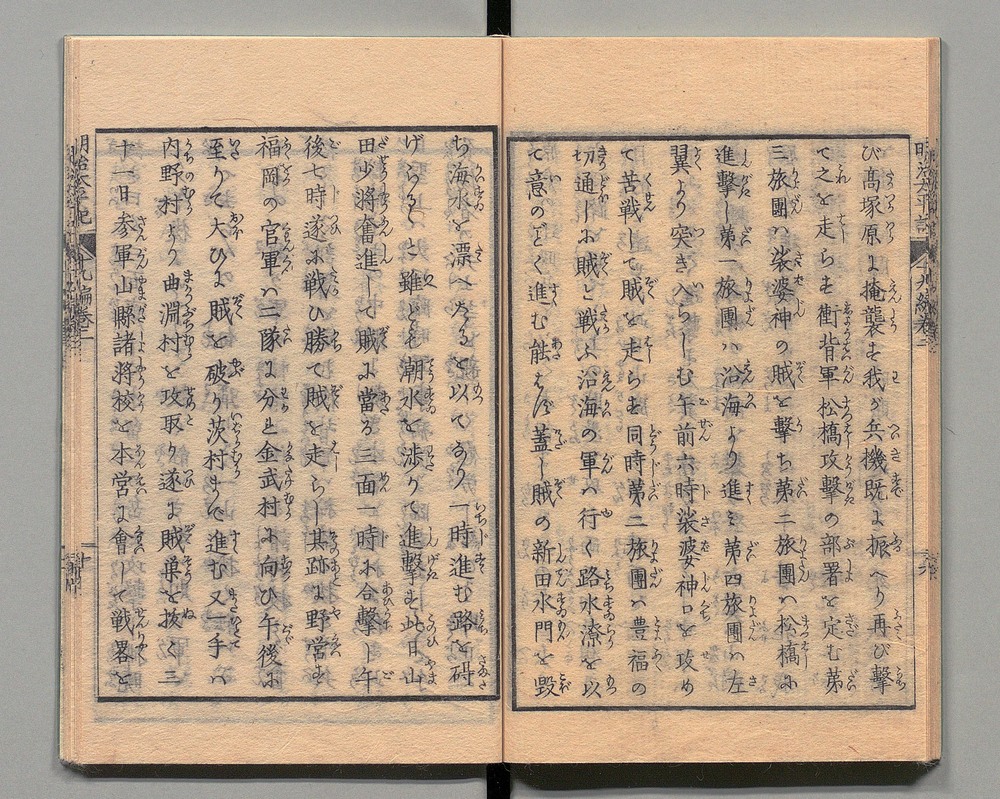 び髙塚原に掩襲す我が兵機既に振へり再び撃
て之を走らす衝背軍松橋攻撃の部署を定む第
三旅團ハ娑婆神の賊を撃ち第二旅團ハ松橋に
進撃し第一旅團ハ沿海より進ミ第四旅團ハ左
翼より突き入らしむ午前六時娑婆神口を攻め
て苦戦して賊を走らす同時第二旅團ハ豊福の
切通しに賊と戦ふ沿海の軍ハ行く路水潦を以
て意のごとく進む能はず蓋し賊の新田水門を毀
ち海水を漂へたるを以てなり一時進む路を碍
げらるゝと雖ども潮水を渉りて進撃す此日山
田少將奮進して賊に當る三面一時に合撃し午
後七時遂に戦ひ勝て賊を走らし其跡に野営す
福岡の官軍ハ三隊に分と金武村に向ひ午後に
至りて大ひに賊を破り茨村まで進む又一手ハ
内野村より曲淵村を攻取り遂に賊巣を抜く三
十一日参軍山縣諸將校を本営に會して戦畧を
明治太平記
十九編巻二
十